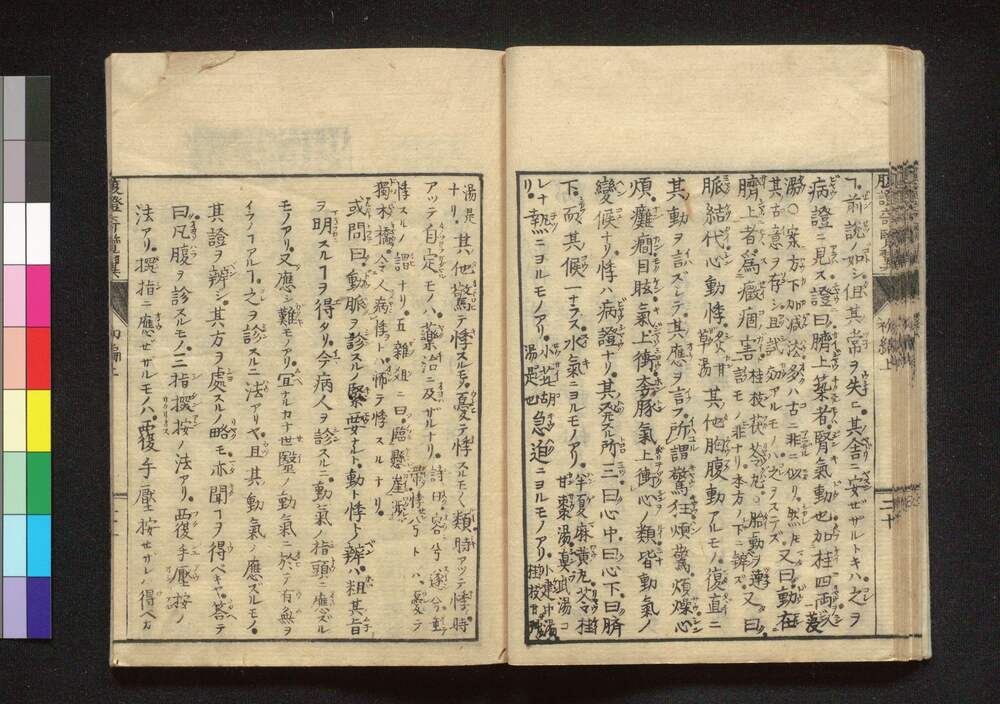 ヿ前説ノ如シ但其常ヲ失ニ其舎ニ安ゼザルトキハ之ヲ
病證ニ見ス證曰臍上築者腎氣動也加桂四両
湯○案方下加減法多ハ古ニ非ニ似リ然𪜈又曰動在
其古意ヲ存シ且試効アルモノハ之ヲステズ
臍上者爲癥痼害桂枝茯苓丸○胎動ヲ又曰
訳モノ非ナリ本方ノ下ニ辨ズ
脈結代心動悸炙甘草湯其他胸腹動アルモノ復直ニ
其動ヲ言ズシテ其應ヲ言フ所謂驚狂煩驚煩燥心
煩癱癇目眩氣上衝奔豚氣上衝心ノ類皆動氣ノ
變候ナリ悸ハ病證ナリ其発スル所三曰心中曰心下曰臍
下而其候一ナラス水氣ニヨルモノアリ半夏麻黄丸桂
甘棗湯真武湯コ
レナリ熱ニヨルモノアリ小茈胡湯是也急迫ニヨルモノアリ小建中湯
桂枝甘
湯是ナリ其他驚テ悸スルモノ憂テ悸スルモノノ類時アツテ悸時
アツテ自定モノハ薬治ニ及ザルナリ詩曰容兮遂兮垂
帯悸兮ト ハ憂テ
悸スルノ謂ナリ五雑組ニ曰臨懸崖瀑
獨木橋令人病悸ト ハ怖テ悸スルナリ
或問曰動脈ヲ診スルノ緊要ナルト動ト悸トノ辨ハ粗其旨
ヲ明スルヿヲ得タリ今病人ヲ診スルニ動氣ノ指頭ニ應ズル
モノアリ又應シ難モノアリ宜ナルカナ世醫ノ動氣ニ於テ有無ヲ
イフノヿアルヿ之ヲ診スルニ法アリヤ且其動氣ノ應ズルモノ
其證ヲ辨シ其方ヲ處スルノ略モ亦聞ヿヲ得ベキヤ答テ
曰凡腹ヲ診スルモノ三指按法アリ覆手壓按ノ
法アリ指ニ應ゼザルモノハ覆手壓按セザレハ得ベカ